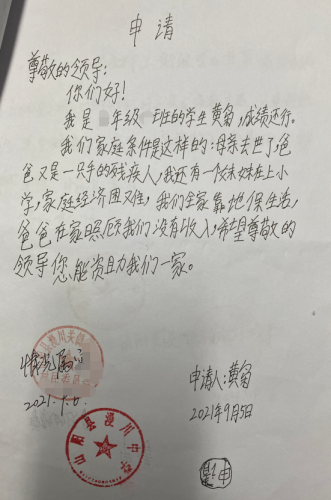 申请
尊敬的领导：
你们好！
我是 年级 班的学生黄匋，成绩还行。
我们家庭条件是这样的：母亲去世了，爸
爸又是一只手的残疾人，我还有一个妹妹在上小
学，家庭经济困难，我们全家靠地保生活，
爸爸在家照顾我们没有收入，希望尊敬的
领导您能资助我们一家。
情况属
申请人：黄匋
2021.9.6.
2021年9月5日
山阳县漫川中学